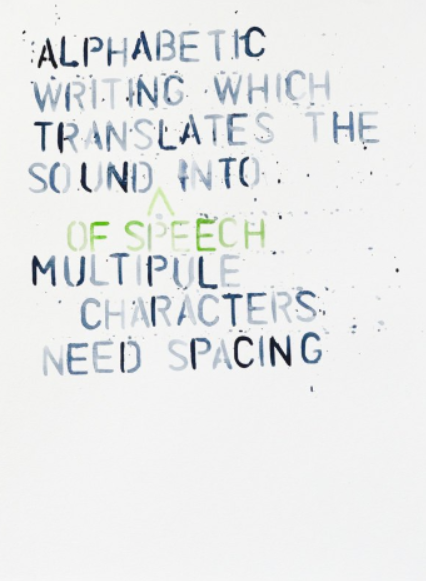 ALPHABETIC
WRITING WHICH
TRANSLATES THE
SOUND INTO
^
OF SPEECH
MULTIPULE
CHARACTERS
NEED SPACING